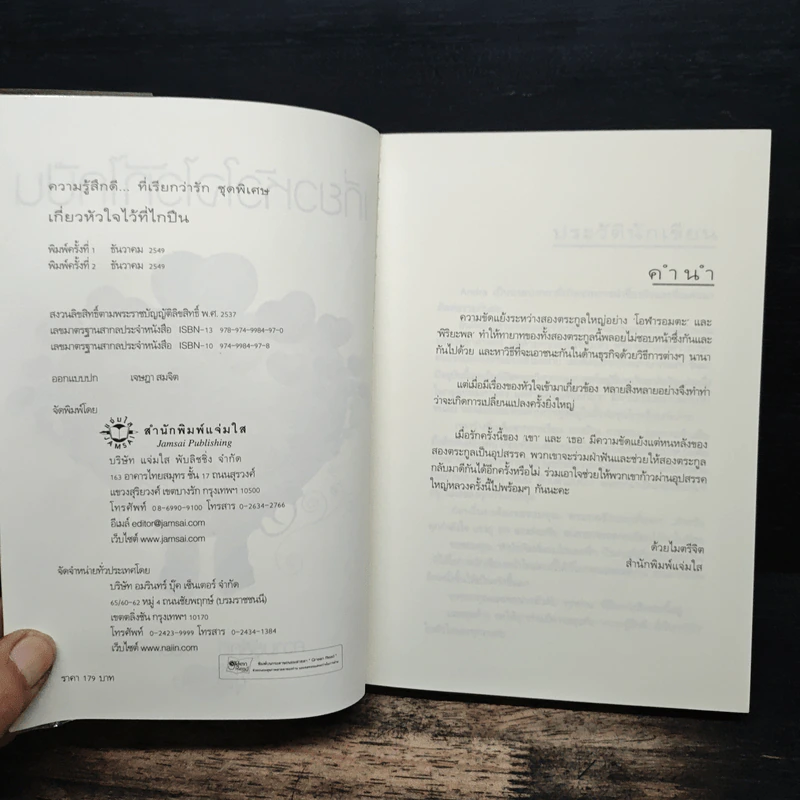 ความรู้สึกดี... ที่เรียกว่ารัก ชุดพิเศษ
เกี่ยวหัวใจไว้ที่ไกปืน
พิมพ์ครั้งที่ 1 ธันวาคม 2549
พิมพ์ครั้งที่ 2 ธันวาคม 2549
สงวนลิขสิทธิ์ตามพระราชบัญญัติลิขสิทธิ์ พ.ศ. 2537
เลขมาตรฐานสากลประจำหนังสือ ISBN-13 978-974-9984-97-0
เลขมาตรฐานสากลประจำหนังสือ ISBN-10 974-9984-97-8
ออกแบบปก เจษฎา สมจิต
จัดพิมพ์โดย
สำนักพิมพ์แจ่มใส
Jamsai Publishing
บริษัท แจ่มใส พับลิชชิ่ง จำกัด
163 อาคารไทยสมุทร ชั้น 17 ถนนสุรวงศ์
แขวงสุริยวงศ์ เขตบางรัก กรุงเทพฯ 10500
โทรศัพท์ 08-6990-9100 โทรสาร 0-2634-2766
อีเมล์ editor@jamsai.com
เว็บไซต์ www.jamsai.com
จัดจำหน่ายทั่วประเทศโดย
บริษัท อมรินทร์ บุ๊ค เซ็นเตอร์ จำกัด
65/60-62 หมู่ 4 ถนนชัยพฤกษ์ (บรมราชชนนี)
เขตตลิ่งชัน กรุงเทพฯ 10170
โทรศัพท์ 0-2423-9999 โทรสาร 0-2434-1384
เว็บไซต์ www.naiin.com
ราคา 179 บาท
ประวัตินักเขียน
คำนำ
ความขัดแย้งระหว่างสองตระกูลใหญ่อย่าง 'โอฬารอมตะ' และ
'พิริยะพล' ทำให้ทายาทของทั้งสองตระกูลนี้พลอยไม่ชอบหน้าซึ่งกันและ
กันไปด้วย และหาวิธีที่จะเอาชนะกันในด้านธุรกิจด้วยวิธีการต่างๆ นานา
แต่เมื่อมีเรื่องของหัวใจเข้ามาเกี่ยวข้อง หลายสิ่งหลายอย่างจึงทำท่า
ว่าจะเกิดการเปลี่ยนแปลงครั้งยิ่งใหญ่
เมื่อรักครั้งนี้ของ 'เขา' และ 'เธอ' มีความขัดแย้งแต่หนหลังของ
สองตระกูลเป็นอุปสรรค พวกเขาจะร่วมฝ่าฟันและช่วยให้สองตระกูล
กลับมาดีกันได้อีกครั้งหรือไม่ ร่วมเอาใจช่วยให้พวกเขาก้าวผ่านอุปสรรค
ใหญ่หลวงครั้งนี้ไปพร้อมๆ กันนะคะ
ด้วยไมตรีจิต
สำนักพิมพ์แจ่มใส